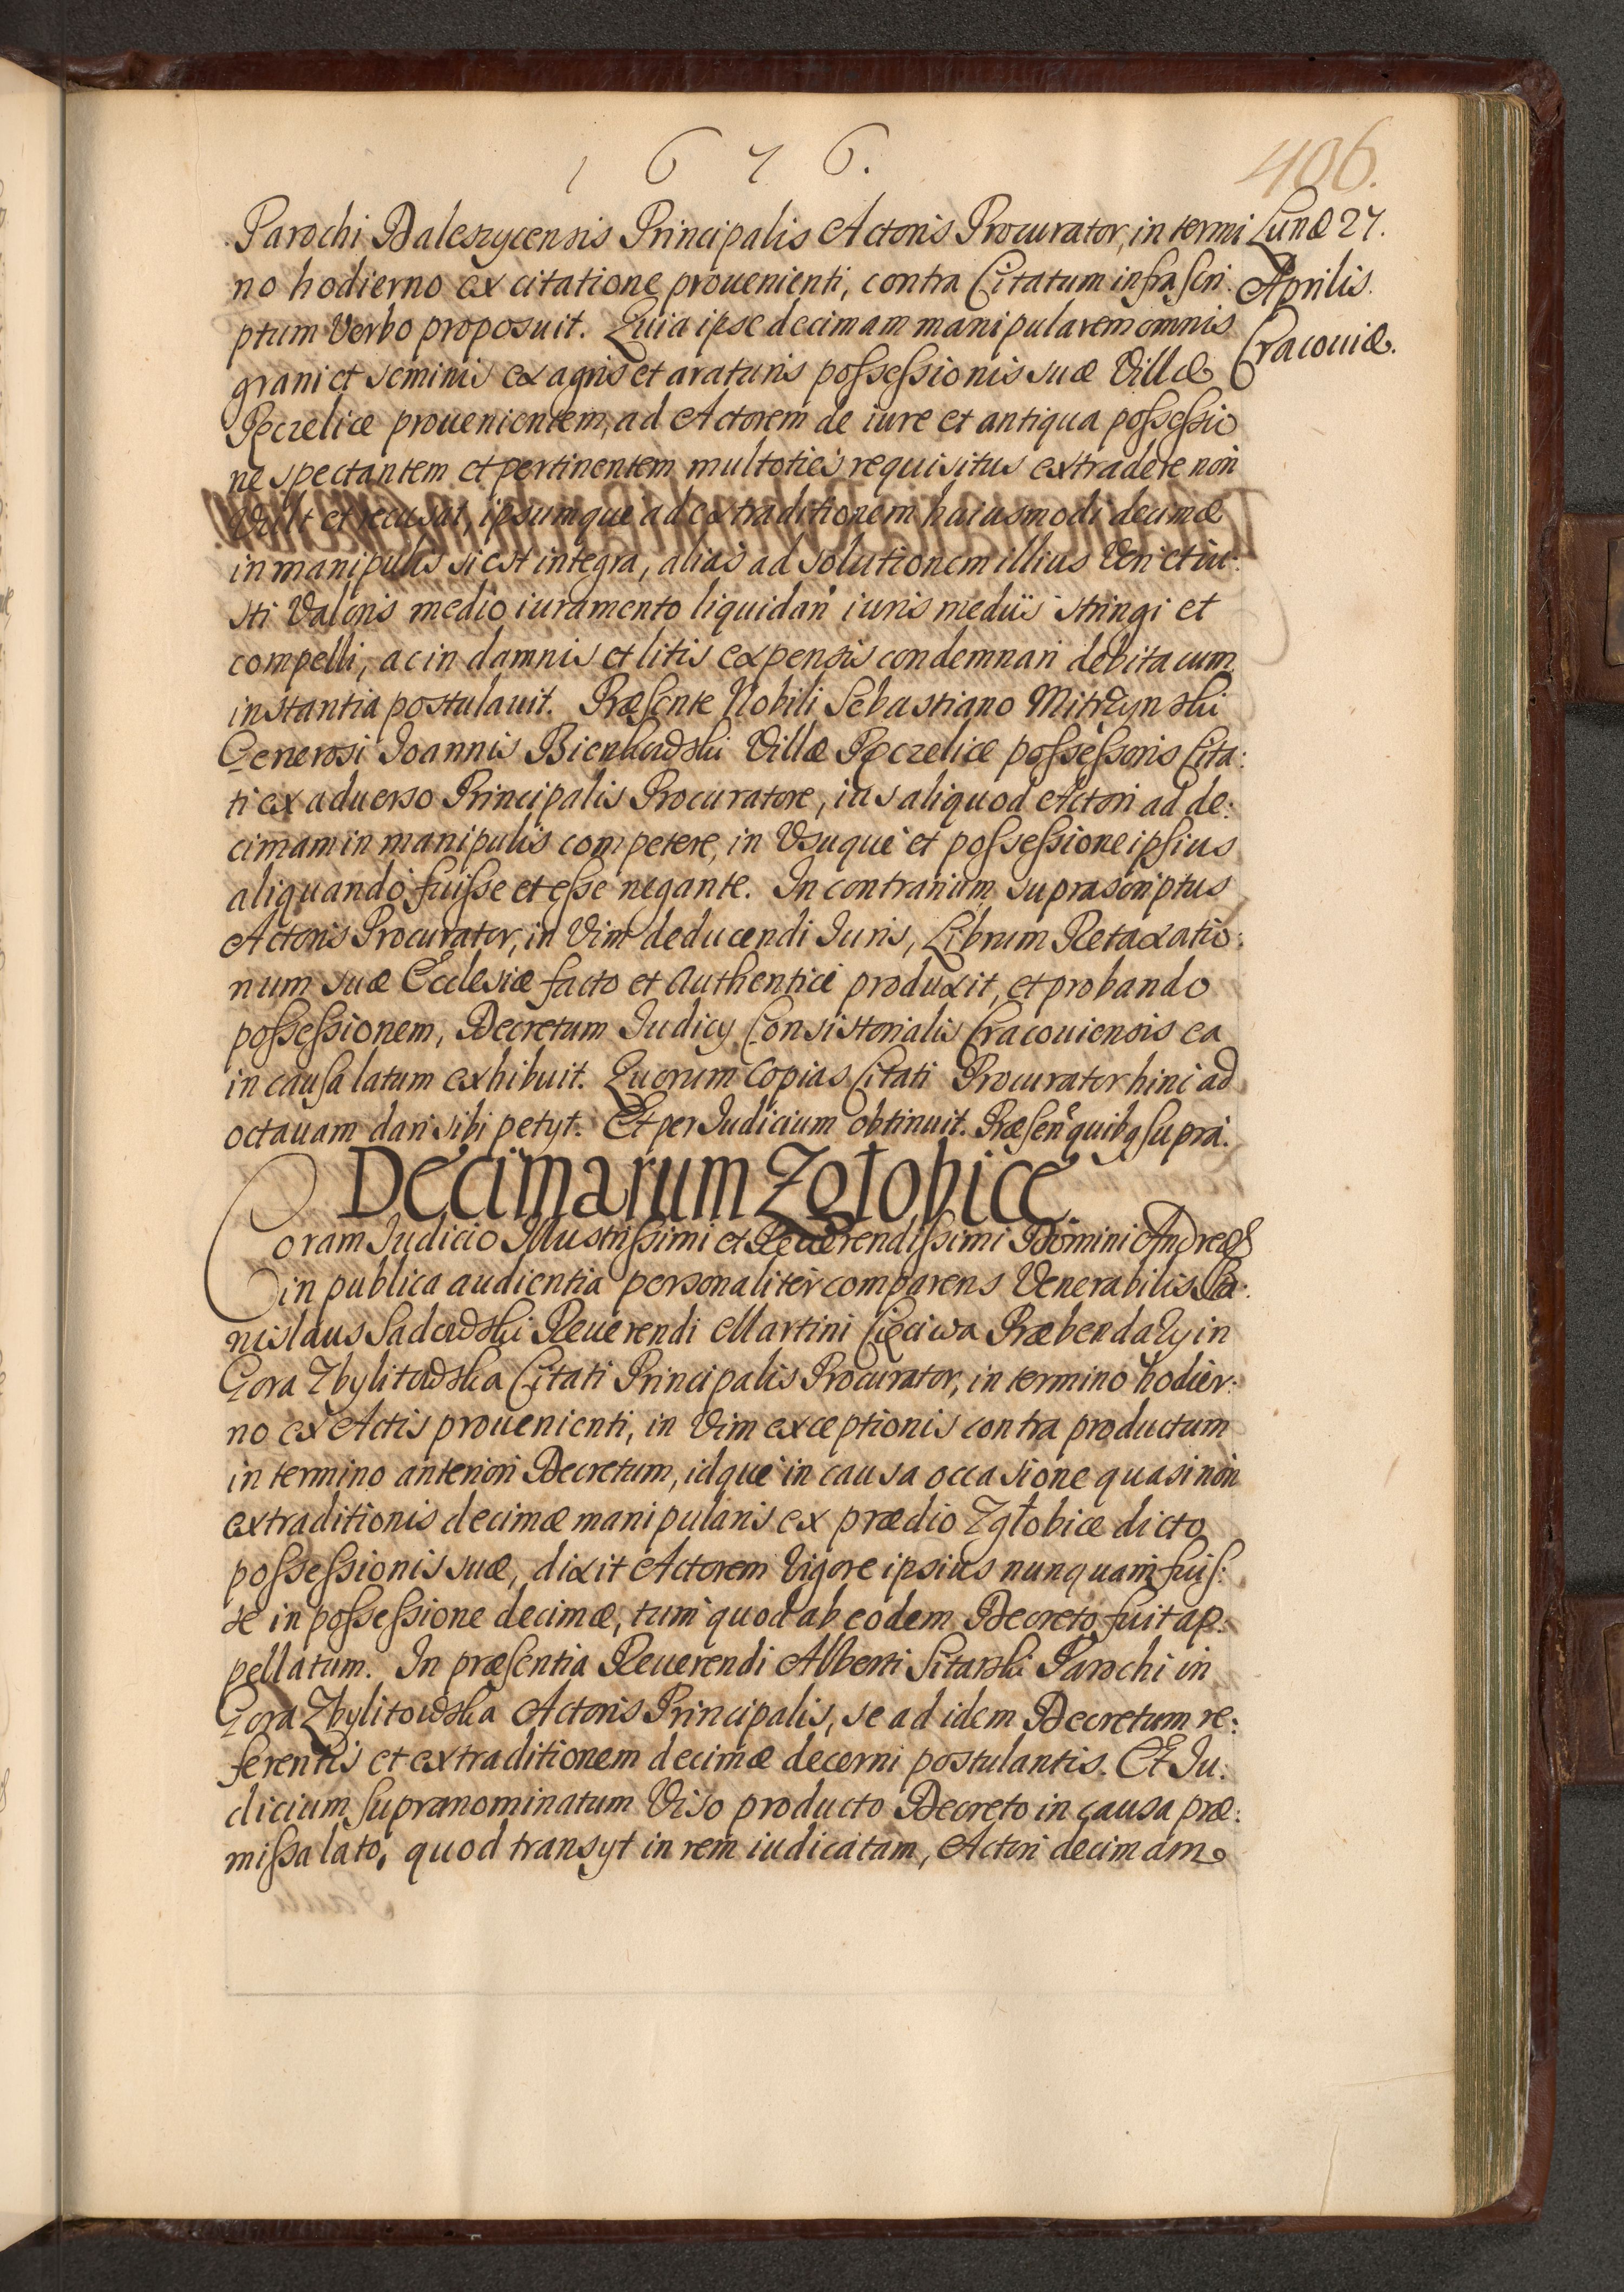 1 6 7 6.
406.
Parochi Daleszycensis Principalis Actoris Procurator, in termi
Lunæ 27.
no hodierno ex citatione prouenienti, contra Citatum infrascri:
Aprilis.
ptum Verbo proposuit. Quia ipse decimam manipularem omnis
Cracouiæ.
grani et seminis ex agris et araturis possessionis suæ Villæ
Reczelice prouenientem, ad Actorem de iure et antiqua possessio
ne spectantem et pertinentem multoties requisitus extradere non
Vult et recusat, ipsumque ad extraditionem huiusmodi decimæ
in manipulis si est integra, alias ad solutionem illius Veri et iu:
sti Valoris medio iuramento liquidari iuris medijs stringi et
compelli, ac in damnis et litis expensis condemnari debita cum
instantia postulauit. Præsente Nobili Sebastiano Mitrzynski
Generosi Ioannis Bienkowski Villæ Reczelice possessoris Cita:
ti ex aduerso Principalis Procuratore, ius aliquod Actori ad de:
cimam in manipulis competere, in Vsuque et possessione ipsius
aliquando fuisse et esse negante. In contrarium suprascriptus
Actoris Procurator, in Vim deducendi Iuris, Librum Retaxatio:
num suæ Ecclesiæ facto et Authentice produxit, et probando
possessionem, Decretum Iudicij Consistorialis Cracouiensis ea
in causa latum exhibuit. Quorum Copias Citati Procurator hinc ad
octauam dari sibi petyt. Et per Iudicium obtinuit. Præsen quibq supra.
Decimarum Zgłobice
Coram Iudicio Illustrissimi et Reuerendissimi Domini Andreæ
in publica audientia personaliter comparens Venerabilis Sta:
nislaus Sadowski Reuerendi Martini Cięciwa Præbendarÿ in
Gora Zbylitowska Citati Principalis Procurator, in termino hodier:
no ex Actis prouenienti, in Vim exceptionis contra productum
in termino anteriori Decretum, idque in causa occasione quasi non
extraditionis decimæ manipularis ex prædio Zgłobice dicto
possessionis suæ, dixit Actorem Vigore ipsius nunquam fuis:
se in possessione decimæ, tum quod ab eodem Decreto fuit ap:
pellatum. In præsentia Reuerendi Alberti Sitarski Parochi in
Gora Zbylitowska Actoris Principalis, se ad idem Decretum re:
ferentis et extraditionem decimæ decerni postulantis. Et Iu:
dicium supranominatum Viso producto Decreto in causa præ:
missa lato, quod transyt in rem iudicatam, Actori decimam